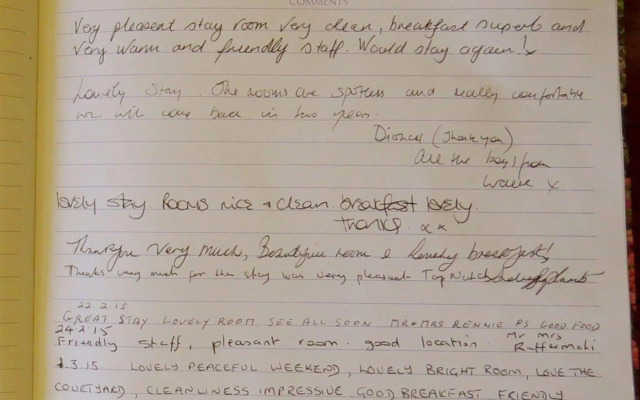 COMMENTS
Very pleasent stay room very clean, breakfast superb and
very warm and friendly staff. Would stay again! x
Lovely Stay. The rooms are spotless and really comfortable
we will come back in two years.
(Thank you)
all the boys from
x
lovely stay Rooms nice + clean. breakfast lovely.
Thanks. x x
Thankyou very much, Beautifull room & lovely breakfast!
Thanks very much for the stay was very pleasant - Top Notch
22 2.15
GREAT STAY LOVELY ROOM SEE ALL SOON MR+MRS RENNIE PS GOOD FOOD
24 2.15 Mr mrs
Friendly staff, pleasant room. good location.
1.3.15. LOVELY PEACEFUL WEEKEND, LOVELY BRIGHT ROOM, LOVE THE
COURTYARD, CLEANLINESS IMPRESSIVE, GOOD BREAKFAST, FRIENDLY